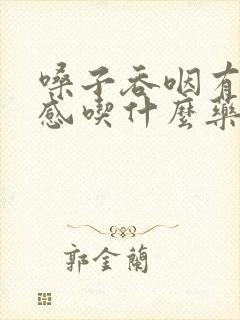 嗓子吞咽有
感喫什麼藥
郭金蘭